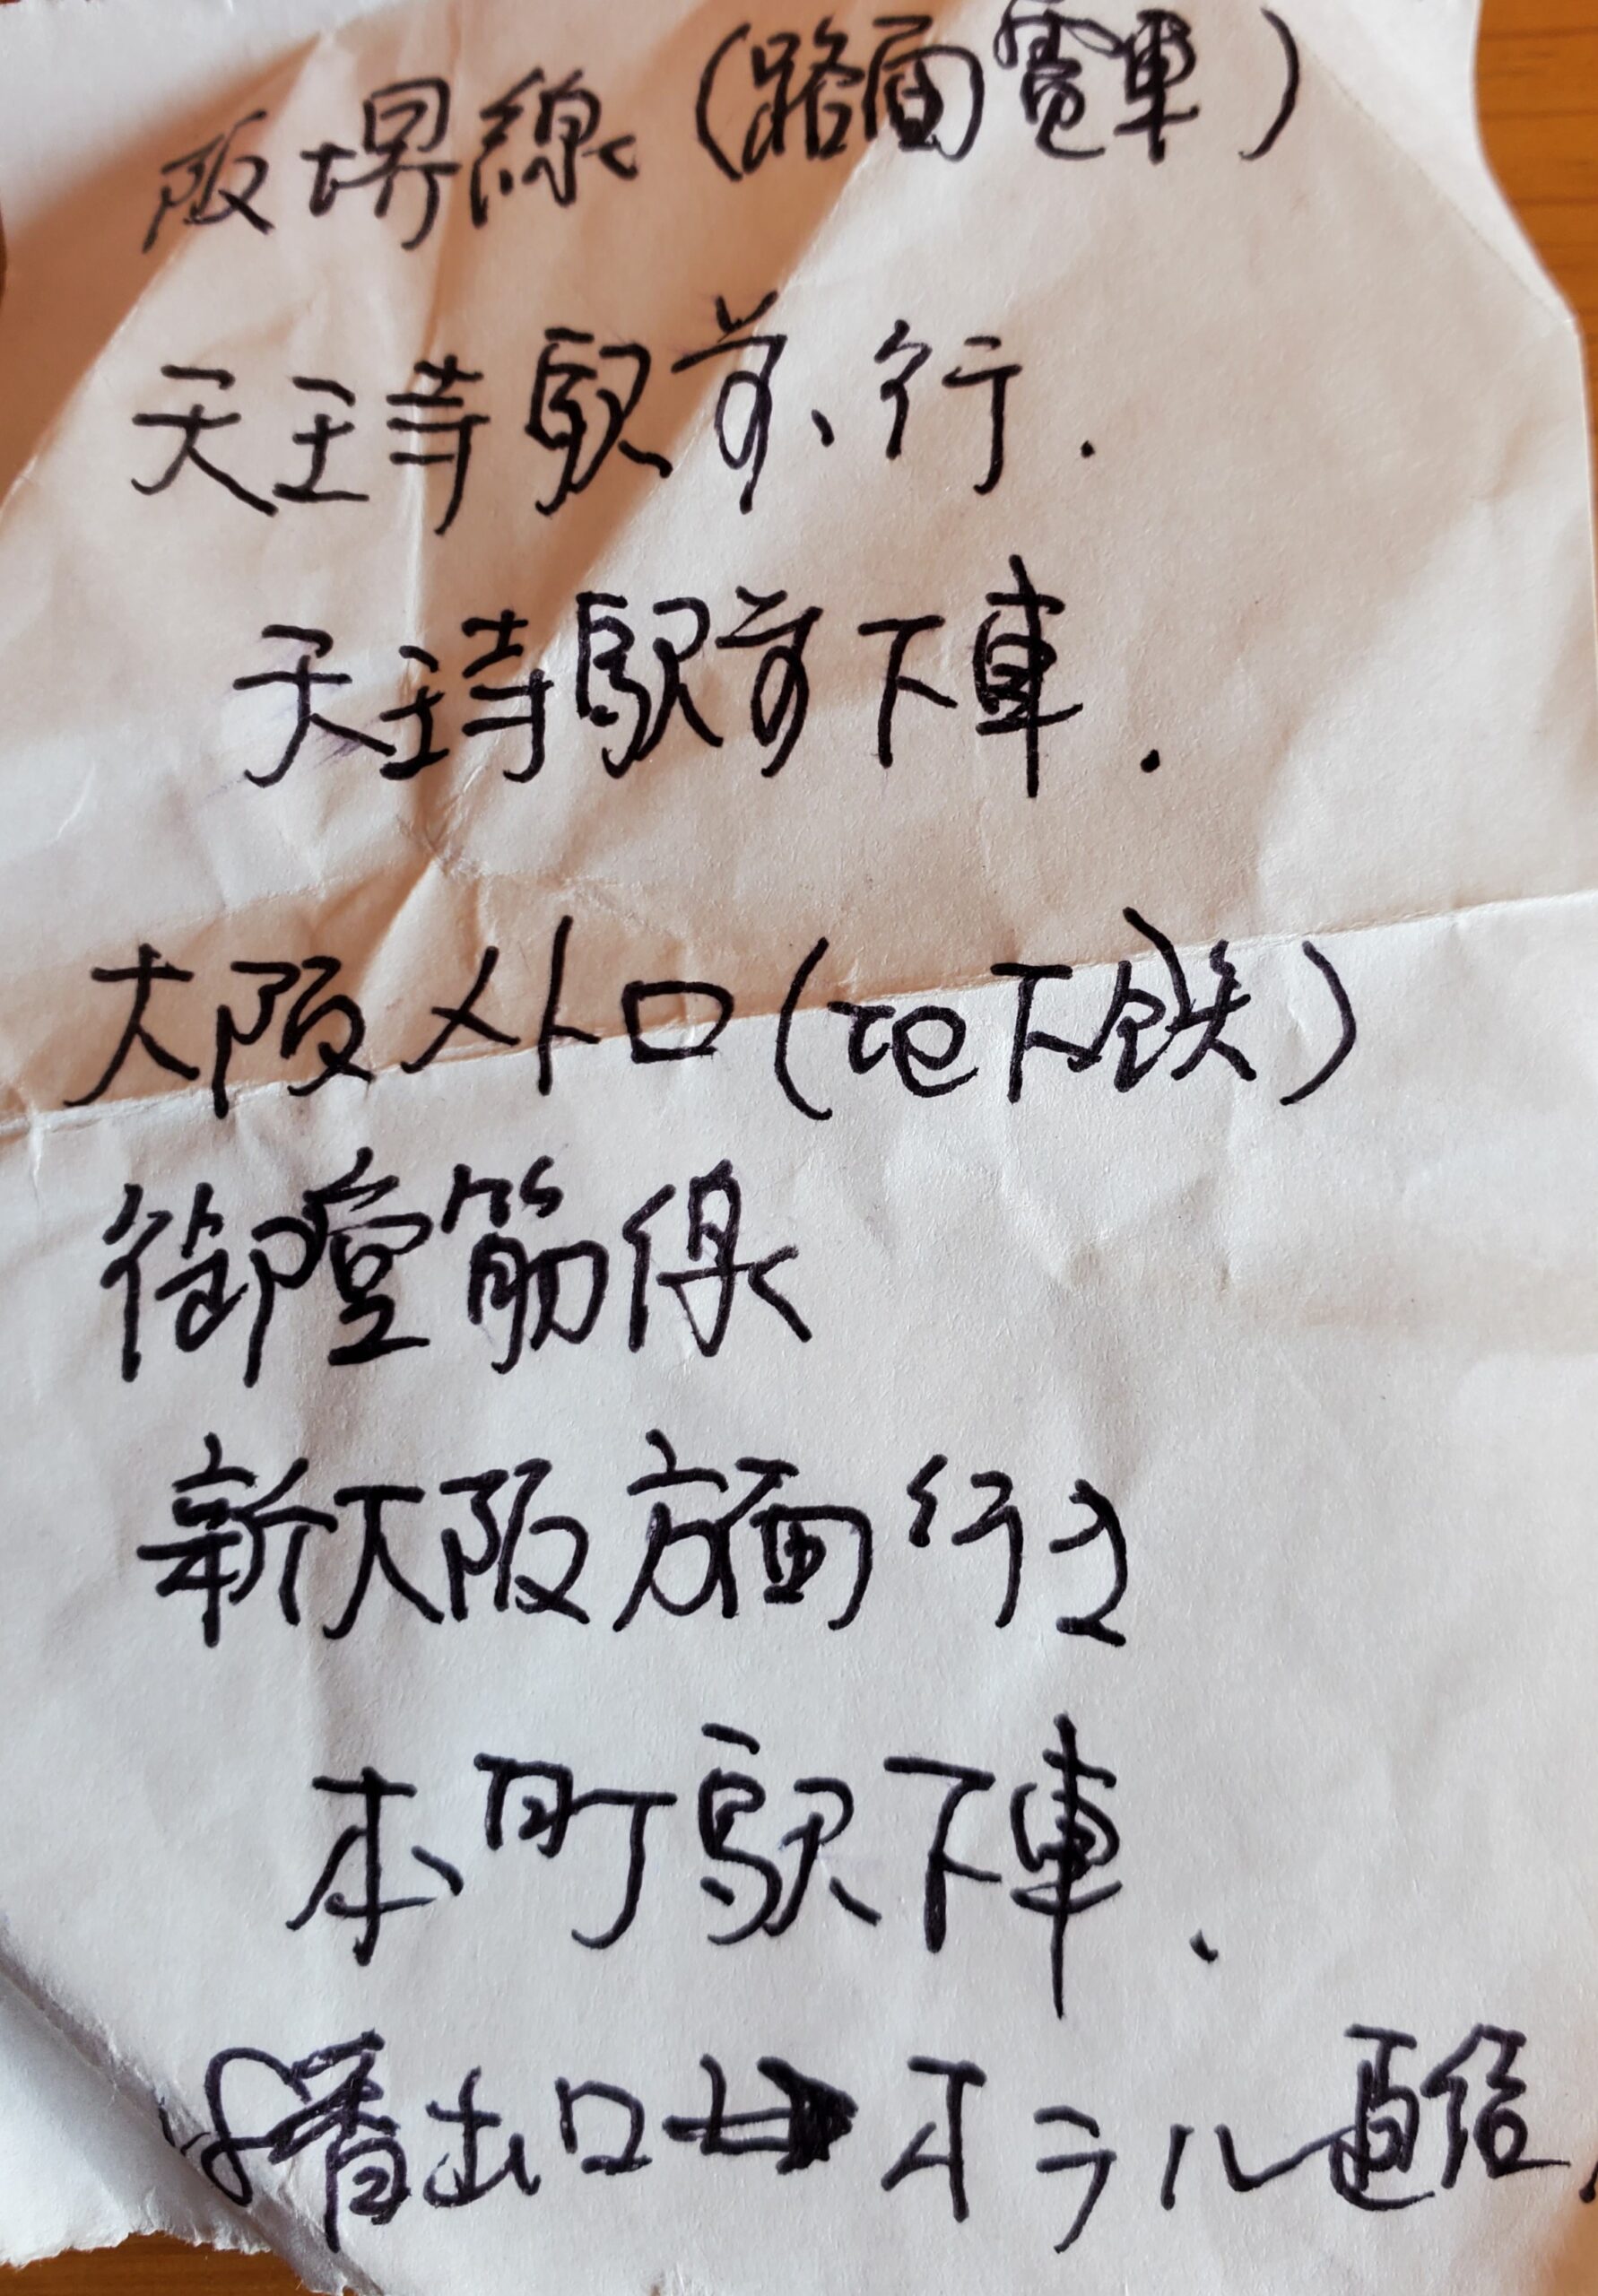 阪堺線(路面電車)
天王寺駅前行.
天王寺駅前下車.
大阪メトロ(地下鉄)
御堂筋線
新大阪方面行き
本町駅下車.
8番出口 ホテル直